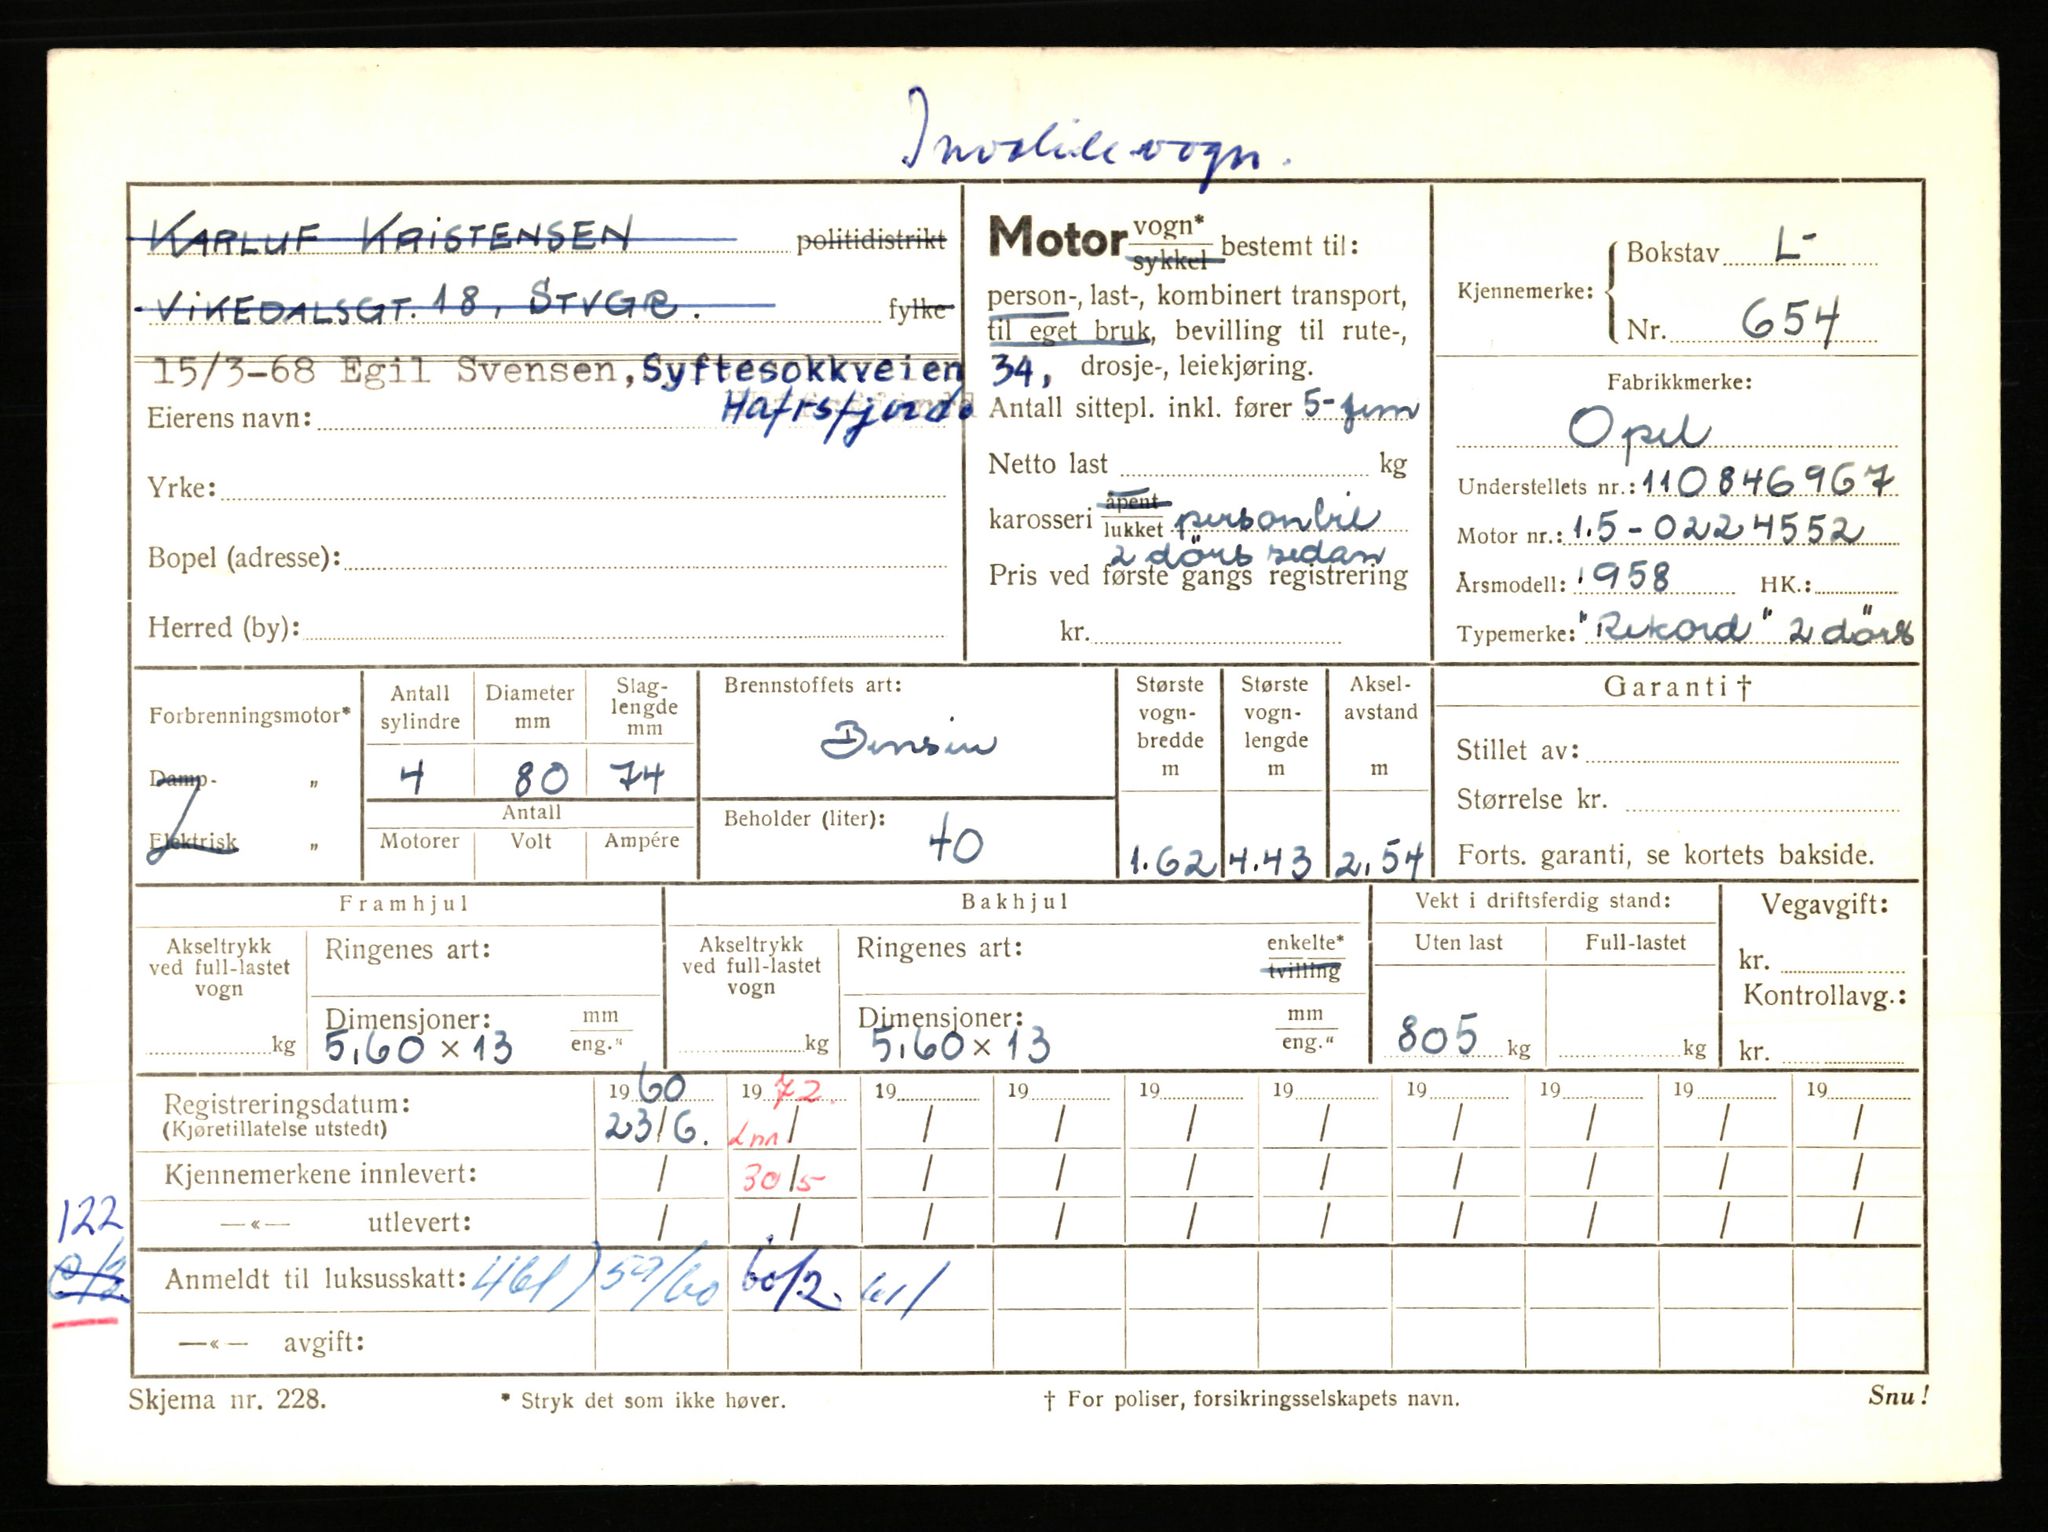 Invalidevogn.
KARLUF KRISTENSEN politidistrikt
VIKEDALSGT. 18, STVGR. fylke
15/3-68 Egil Svensen, Syftesokkveien 34,
Hafrsfjord.
Eierens navn:
Yrke:
Bopel (adresse):
Herred (by):
Motor vogn* sykkel bestemt til:
person-, last-, kombinert transport,
til eget bruk, bevilling til rute-,
drosje-, leiekjøring.
Antall sittepl. inkl. fører 5-fem
Netto last kg
karosseri åpent lukket personbil
2 dörs sedan
Pris ved første gangs registrering
kr.
Kjennemerke: Bokstav L-
Nr. 654
Fabrikkmerke:
Opel
Understellets nr.: 110846967
Motor nr.: 1.5-0224552
Årsmodell: 1958 HK.:
Typemerke: "Rekord" 2 dörs
Forbrenningsmotor*
Damp- „
Elektrisk „
Antall sylindre Diameter mm Slag-lengde mm
4 80 74
Antall
Motorer Volt Ampére
Brennstoffets art:
Bensin
Beholder (liter):
40
Største vogn-bredde m Største vogn-lengde m Aksel-avstand m
1.62 4.43 2.54
Garanti †
Stillet av:
Størrelse kr.
Forts. garanti, se kortets bakside.
Framhjul
Akseltrykk ved full-lastet vogn
kg
Ringenes art:
Dimensjoner: mm eng."
5.60 x 13
Bakhjul
Akseltrykk ved full-lastet vogn
kg
Ringenes art: enkelte* tvilling
Dimensjoner: mm eng."
5.60 x 13
Vekt i driftsferdig stand:
Uten last Full-lastet
805 kg kg
Vegavgift:
kr.
Kontrollavg.:
kr.
19 60 19 72 19 19 19 19 19 19 19 19
Registreringsdatum: 23/6. / / / / / / / / /
(Kjøretillatelse utstedt)
Kjennemerkene innlevert: / 30/5 / / / / / / / /
—«— utlevert: / / / / / / / / / /
122
Anmeldt til luksusskatt: 461) 59/60 60/2. 61/
—«— avgift:
Skjema nr. 228. * Stryk det som ikke høver. † For poliser, forsikringsselskapets navn. Snu!